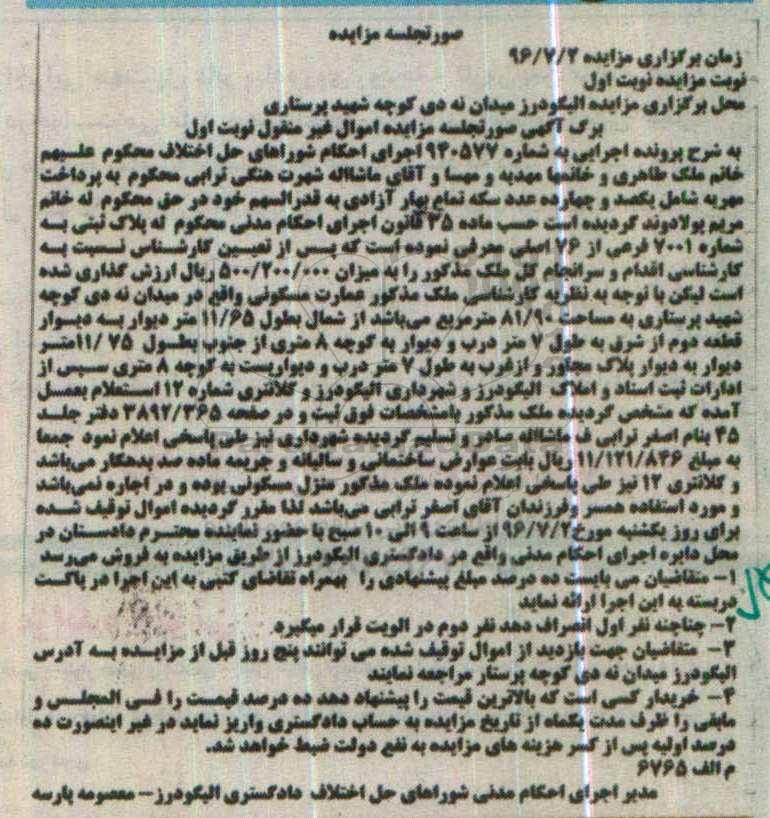 صورتجلسه مزایده
زمان برگزاری مزایده ۹۶/۷/۲
نوبت مزایده نوبت اول
محل برگزاری مزایده الیگودرز میدان نه دی کوچه شهید پرستاری
برگ آگهی صورتجلسه مزایده اموال غیر منقول نوبت اول
به شرح پرونده اجرایی به شماره ۹۴۰۵۷۷ اجرای احکام شوراهای حل اختلاف محکوم علیهم
خانم ملک طاهری و خانمها مهدیه و مهسا و آقای ماشااله شهرت هنگی ترابی محکوم به پرداخت
مهریه شامل یکصد و چهارده عدد سکه تمام بهار آزادی به قدرالسهم خود در حق محکوم له خانم
مریم پولادوند گردیده است حسب ماده ۳۵ قانون اجرای احکام مدنی محکوم له پلاک ثبتی به
شماره ۷۰۰۱ فرعی از ۷۶ اصلی معرفی نموده است که پس از تعیین کارشناس نسبت به
کارشناسی اقدام و سرانجام کل ملک مذکور را به میزان ۵۰۰/۲۰۰/۰۰۰ ریال ارزش گذاری شده
است لیکن با توجه به نظریه کارشناسی ملک مذکور عمارت مسکونی واقع در میدان نه دی کوچه
شهید پرستاری به مساحت ۸۱/۹۰ مترمربع می‌باشد از شمال بطول ۱۱/۶۵ متر دیوار به دیوار
قطعه دوم از شرق به طول ۷ متر درب و دیوار به کوچه ۸ متری از جنوب بطول ۱۱/۷۵ متر
دیوار به دیوار پلاک مجاور و ازغرب به طول ۷ متر درب و دیواریست به کوچه ۸ متری سپس از
ادارات ثبت اسناد و املاک الیگودرز و شهرداری الیگودرز و کلانتری شماره ۱۲ استعلام بعمل
آمده که مشخص گردیده ملک مذکور بامشخصات فوق ثبت و در صفحه ۳۸۹۲/۳۶۵ دفتر جلد
۴۵ بنام اصغر ترابی ف ماشااله صادر و تسلیم گردیده شهرداری نیز طی پاسخی اعلام نمود جمعا
به مبلغ ۱۱/۱۲۱/۸۴۶ ریال بابت عوارض ساختمانی و سالیانه و جریمه ماده صد بدهکار می‌باشد
و کلانتری ۱۲ نیز طی پاسخی اعلام نموده ملک مذکور منزل مسکونی بوده و در اجاره نمی‌باشد
و مورد استفاده همسر وفرزندان آقای اصغر ترابی می‌باشد لذا مقرر گردیده اموال توقیف شده
برای روز یکشنبه مورخ ۹۶/۷/۲ از ساعت ۹ الی ۱۰ صبح با حضور نماینده محترم دادستان در
محل دایره اجرای احکام مدنی واقع در دادگستری الیگودرز از طریق مزایده به فروش می‌رسد
۱- متقاضیان می بایست ده درصد مبلغ پیشنهادی را بهمراه تقاضای کتبی به این اجرا در پاکت
دربسته به این اجرا ارائه نماید
۲- چنانچه نفر اول انصراف دهد نفر دوم در الویت قرار میگیرد.
۳- متقاضیان جهت بازدید از اموال توقیف شده می توانند پنج روز قبل از مزایده به آدرس
الیگودرز میدان نه دی کوچه پرستار مراجعه نمایند
۴- خریدار کسی است که بالاترین قیمت را پیشنهاد دهد ده درصد قیمت را فی المجلس و
مابقی را ظرف مدت یکماه از تاریخ مزایده به حساب دادگستری واریز نماید در غیر اینصورت ده
درصد اولیه پس از کسر هزینه های مزایده به نفع دولت ضبط خواهد شد.
م الف ۶۷۶۵
مدیر اجرای احکام مدنی شوراهای حل اختلاف دادگستری الیگودرز – معصومه پارسه